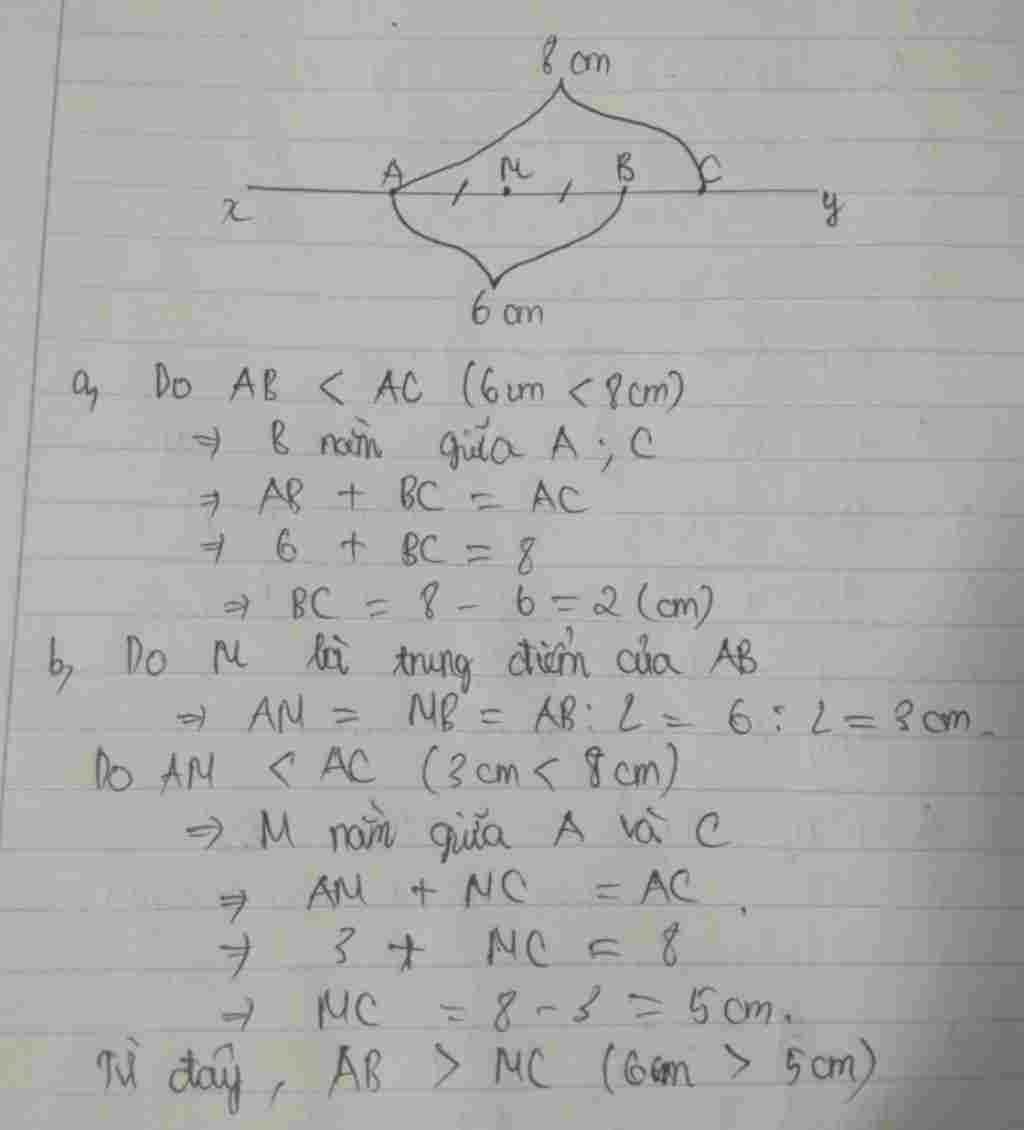 8 cm
A M B C
x y
6 cm
a, Do AB < AC (6cm < 8cm)
⇒ B nằm giữa A ; C
⇒ AB + BC = AC
⇒ 6 + BC = 8
⇒ BC = 8 - 6 = 2 (cm)
b, Do M là trung điểm của AB
⇒ AM = MB = AB : 2 = 6 : 2 = 3 cm.
Do AM < AC (3cm < 8cm)
⇒ M nằm giữa A và C
⇒ AM + MC = AC.
⇒ 3 + MC = 8
⇒ MC = 8 - 3 = 5 cm.
Từ đây, AB > MC (6cm > 5cm)